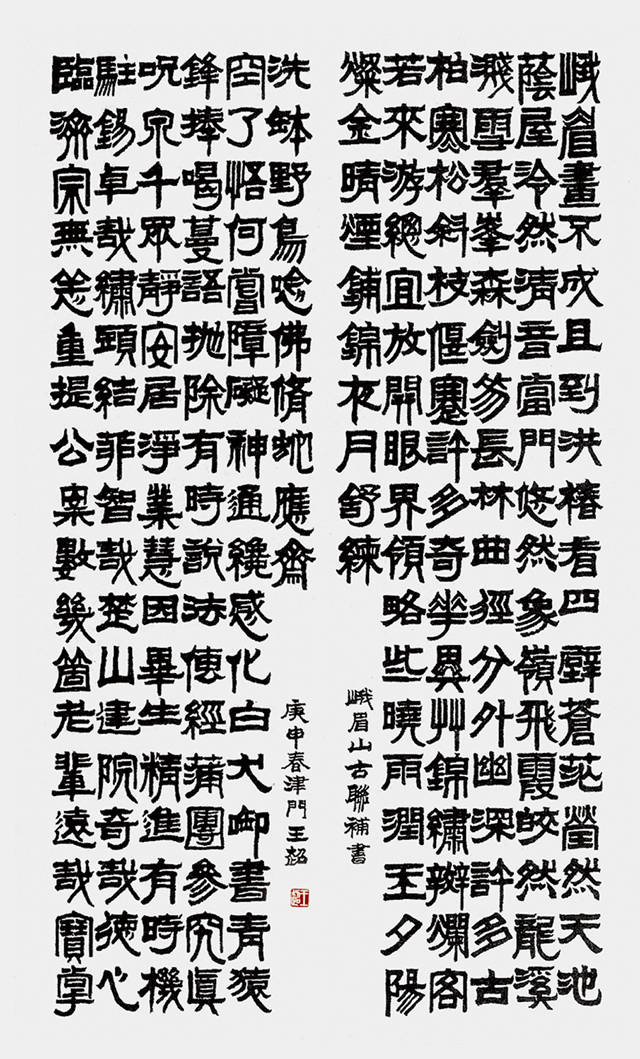 峨眉畫不成且到洪椿看四壁蒼茫瑩然天池
蔭屋泠然清音當門悠然象嶺飛霞皎然龍溪
濺雪羣峯森劍笏長林曲徑分外幽深許多古
柏寒松斜枝偃蹇許多奇華異艸錦繡辬斕客
若來游總宜放開眼界領略些曉雨潤玉夕陽
燦金晴煙鋪錦夜月舒練
峨眉山古聯補書
臨濟宗無恙重提公案數幾箇老輩遠哉寶掌
駐錫卓哉繡頭結菲智哉楚山建院奇哉德心
呪泉千眾靜安居淨業慧因畢生精進有時機
鋒捧喝蔓語拋除有時說法傳經蒲團參究真
空了悟何嘗障礙神通纔感化白犬啣書青猿
洗缽野鳥唸佛脩地應齋
庚申春津門王超